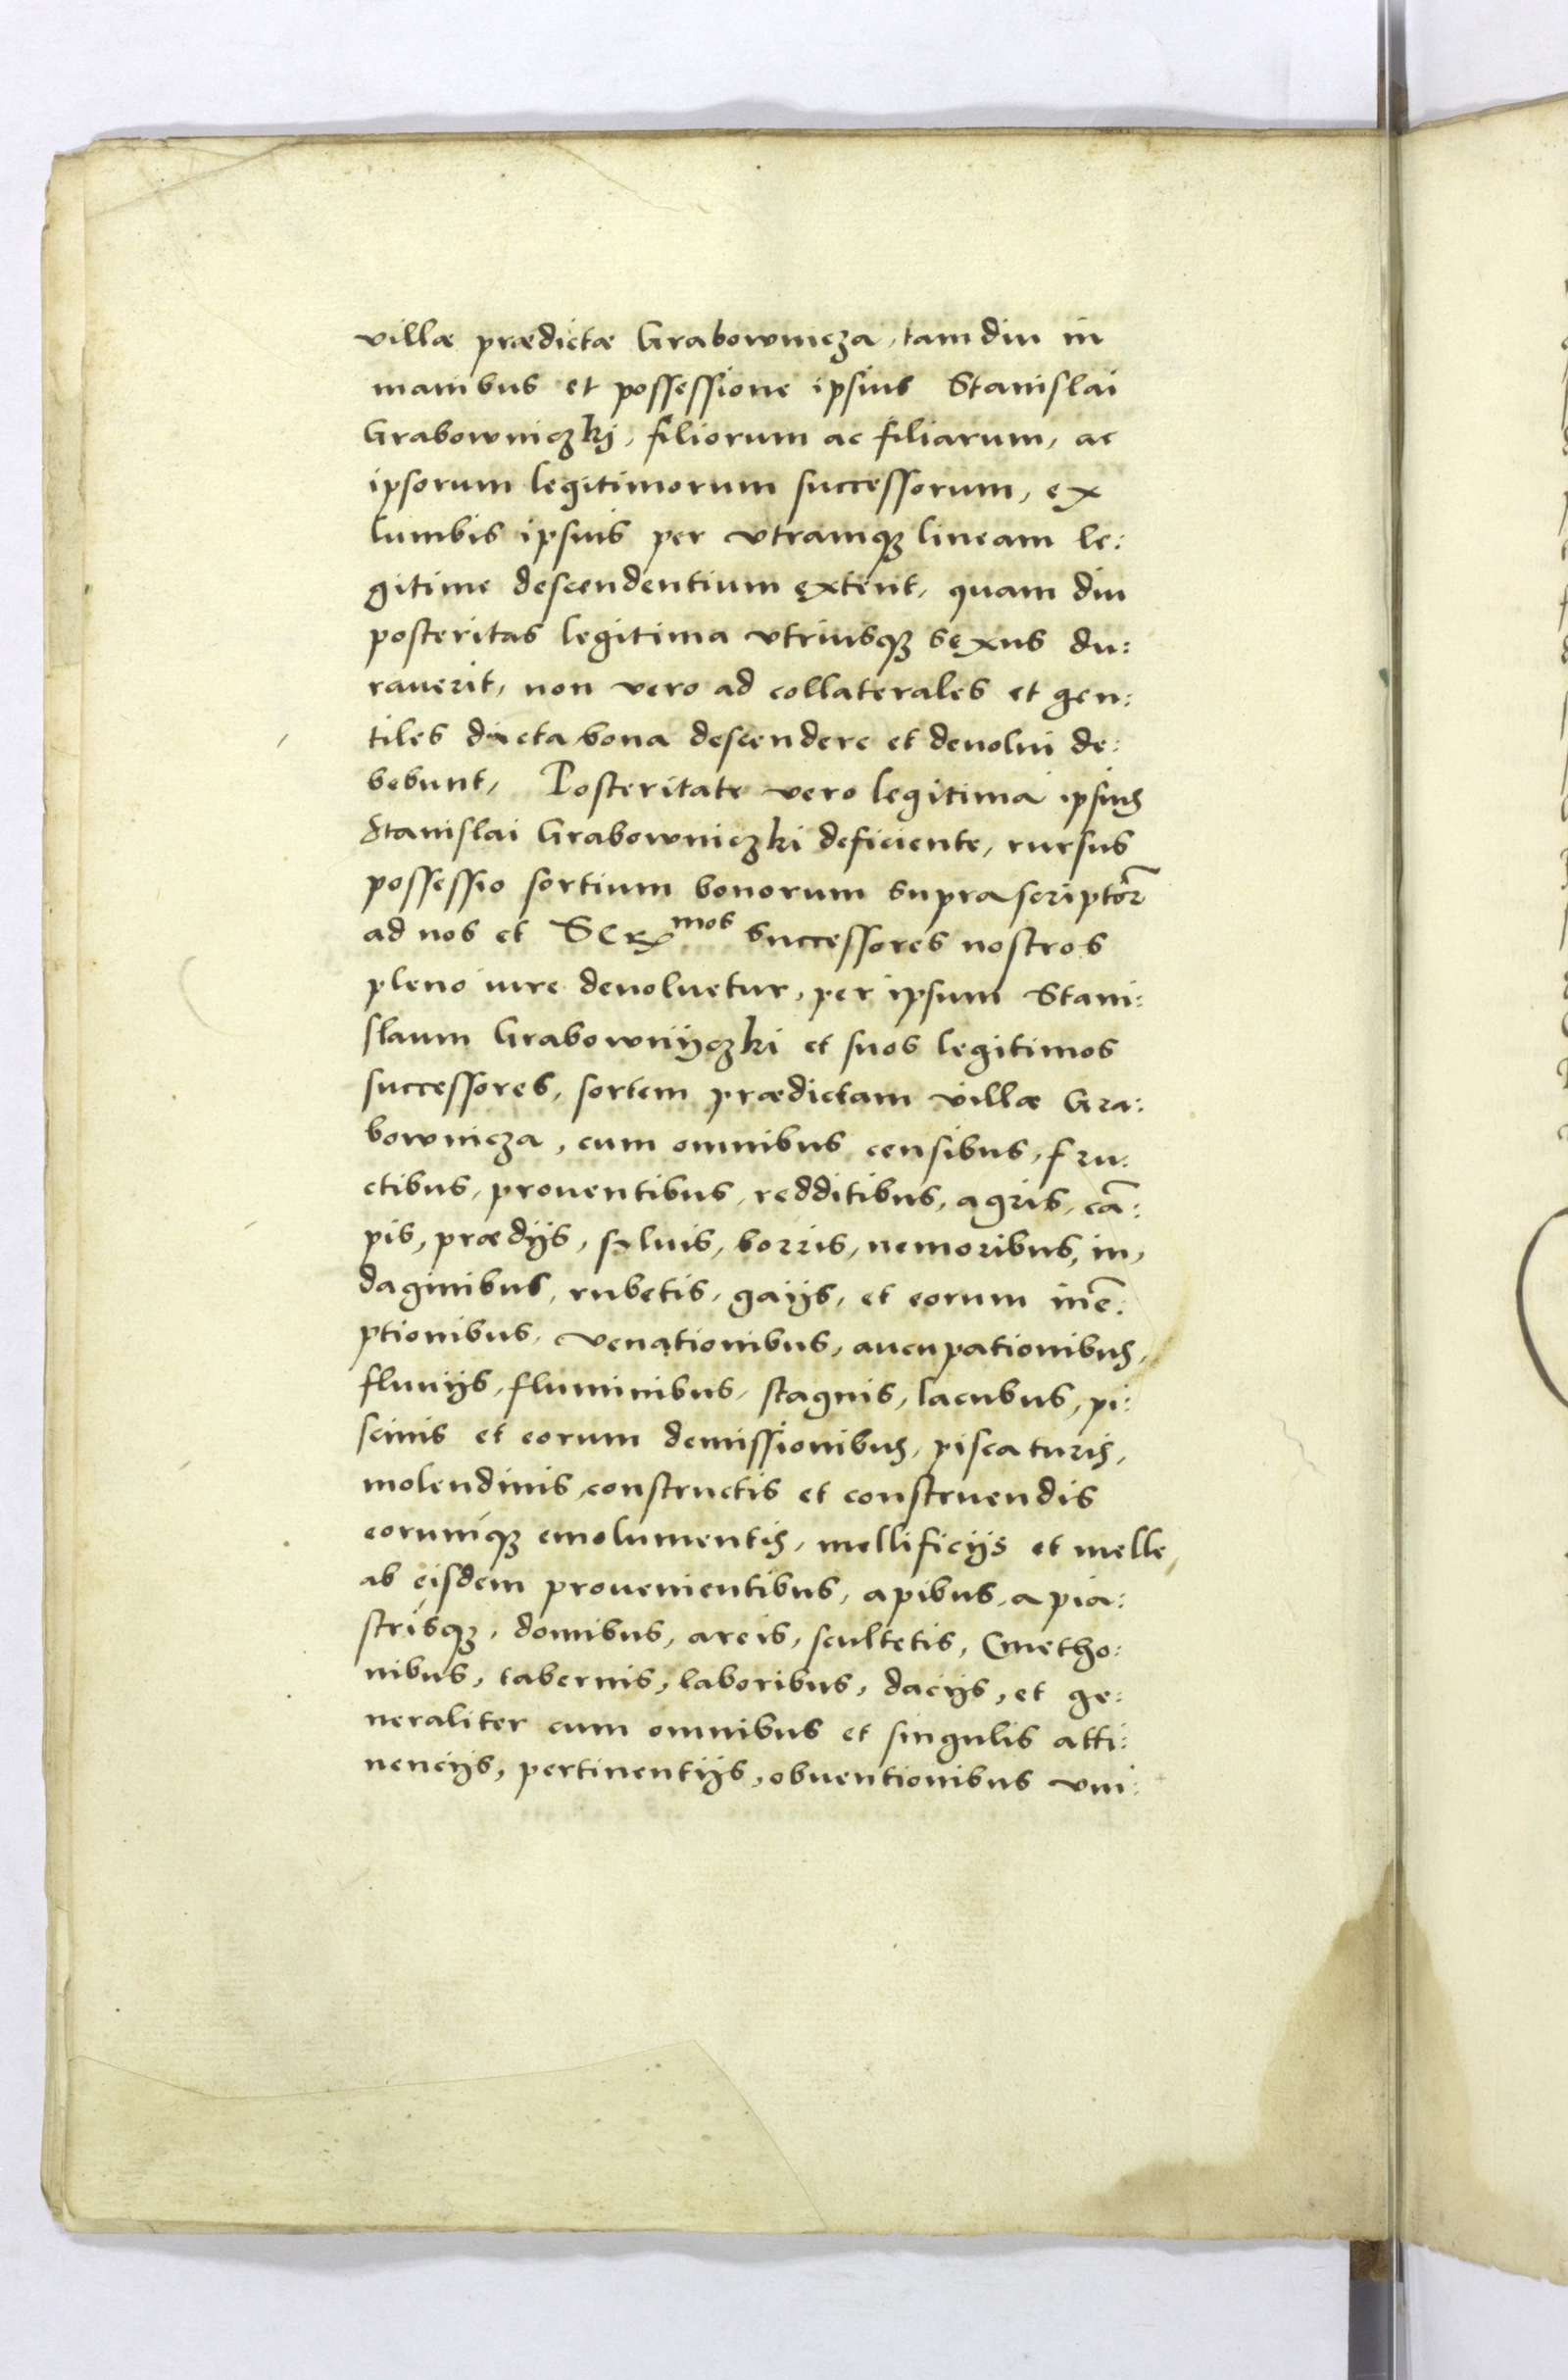 villæ prædictæ Grabownicza, tam diu in
manibus et possessione ipsius Stanislai
Grabowniczkij, filiorum ac filiarum, ac
ipsorum legitimorum successorum, ex
lumbis ipsius per vtramq3 lineam le:
gitime descendentium extent, quam diu
posteritas legitima vtriusq3 sexus du:
rauerit, non vero ad collaterales et gen:
tiles dicta bona descendere et deuolui de:
bebunt, Posteritate vero legitima ipsius
Stanislai Grabowniczki deficiente, rursus
possessio sortium bonorum suprascriptor̃
ad nos et Ser^mos successores nostros
pleno iure deuoluetur, per ipsum Stani:
slaum Grabownijczki et suos legitimos
successores, sortem prædictam villæ Gra:
bownicza, cum omnibus censibus, fru:
ctibus, prouentibus, redditibus, agris, cã:
pis, prædijs, syluis, borris, nemoribus, in,
daginibus, rubetis, gaijs, et eorum
ptionibus, venationibus, aucupationibus,
fluuijs, fluminibus, stagnis, lacubus, pi:
scinis et eorum demissionibus, piscaturis,
molendinis, constructis et construendis
eorumq3 emolumentis, mellificijs et melle,
ab eisdem prouenientibus, apibus, apia:
strisq3, domibus, areis, scultetis, Cmetho:
nibus, tabernis, laboribus, dacijs, et ge:
neraliter cum omnibus et singulis atti:
nencijs, pertinentijs, obuentionibus vni: